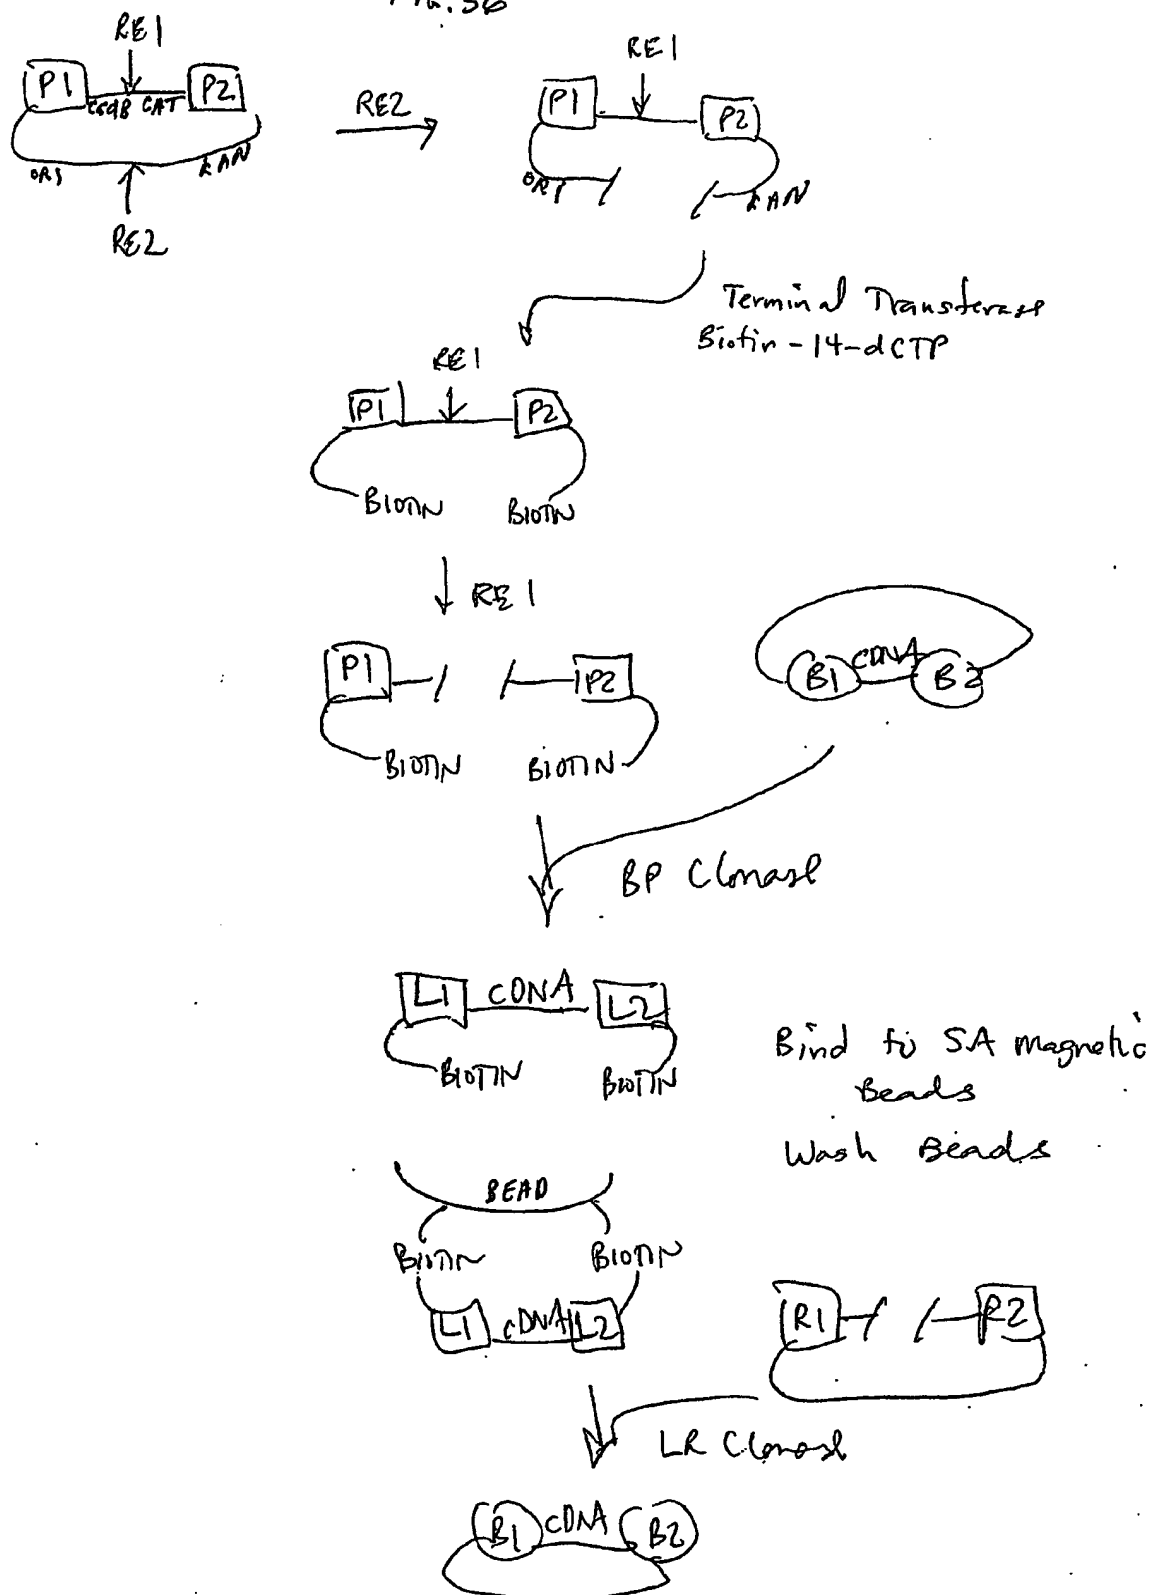 FIG. 36
RE1
P1 ccdB CAT P2
ORI KAN
RE2
RE2
RE1
P1 P2
ORI KAN
Terminal Transferase
Biotin-14-dCTP
RE1
P1 P2
BIOTIN BIOTIN
RE1
P1 P2
BIOTIN BIOTIN
B1 cDNA B2
BP Clonase
L1 cDNA L2
BIOTIN BIOTIN
Bind to SA magnetic
Beads
Wash Beads
BEAD
BIOTIN BIOTIN
L1 cDNA L2
R1 R2
LR Clonase
B1 cDNA B2